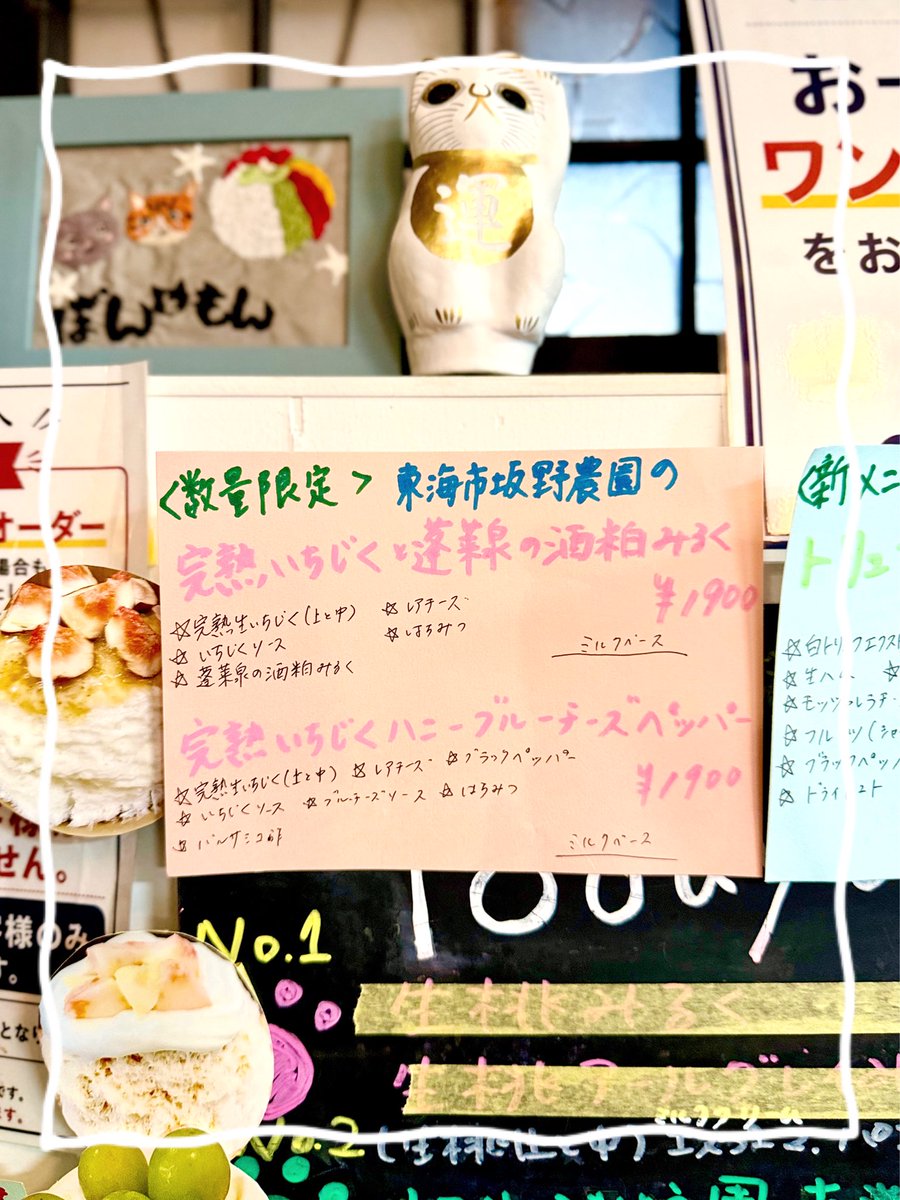 運
ばんやもん
お
ワン
をお
オーダー
場合も
<数量限定> 東海市坂野農園の
完熟いちじくと蓬莱泉の酒粕みるく
¥1900
☆完熟生いちじく(上と中) ☆レアチーズ
☆いちじくソース ☆はちみつ
☆蓬莱泉の酒粕みるく
ミルクベース
完熟いちじくハニーブルーチーズペッパー
¥1900
☆完熟生いちじく(上と中) ☆レアチーズ ☆ブラックペッパー
☆いちじくソース ☆ブルーチーズソース ☆はちみつ
☆バルサミコ酢
ミルクベース
<新メニ
トリュ
☆白トリ
☆生ハム ☆
☆モッツァレラチー
☆フルーツ(
☆ブラックペッパ
☆ドライ
せん。
様のみ
す。
となり
です。
ます。
No.1
生桃みるく
生桃アールグレイ
No.2